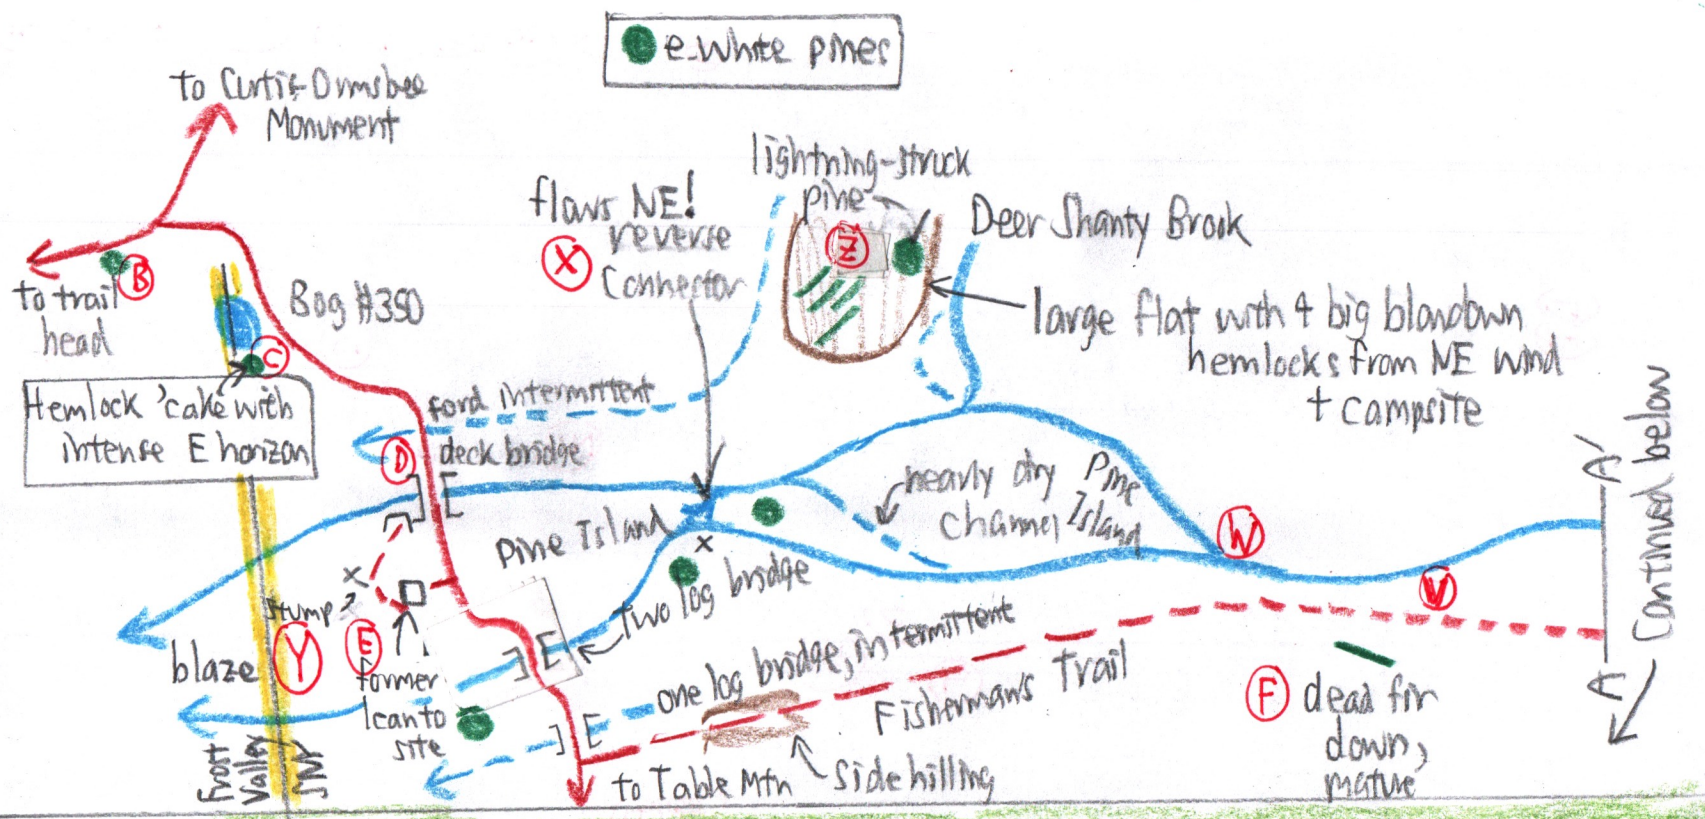 e. white pines
to Curtis-Ormsbee
Monument
lightning-struck
pine
flows NE!
reverse
connector
X
Z
Deer Shanty Brook
B
to trail
head
Bog #350
C
large flat with 4 big blowdown
hemlocks from NE wind
+ campsite
Hemlock 'cake with
intense E horizon
ford intermittent
D
deck bridge
nearly dry
channel
Pine
Island
Pine Island
W
A'
Continued below
x
two log bridge
V
x
stump
Y
E
blaze
former
leanto
site
one log bridge, intermittent
Fisherman's Trail
F
dead fir
down,
mature
A
Frost
Valley
to Table Mtn
side hilling